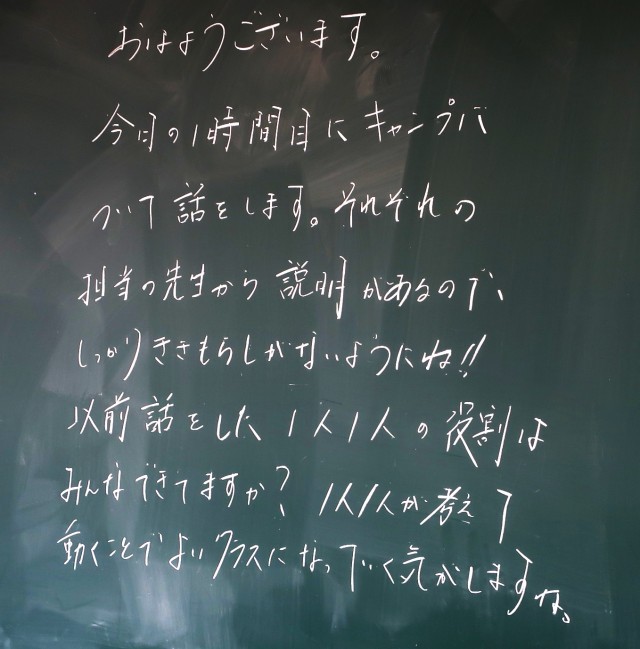 おはようございます。
今日の1時間目にキャンプに
ついて話をします。それぞれの
担当の先生から説明があるので、
しっかりききもらしがないようにね!!
以前話をした1人1人の役割は
みんなできてますか? 1人1人が考えて
動くことでよいクラスになっていく気がしますな。